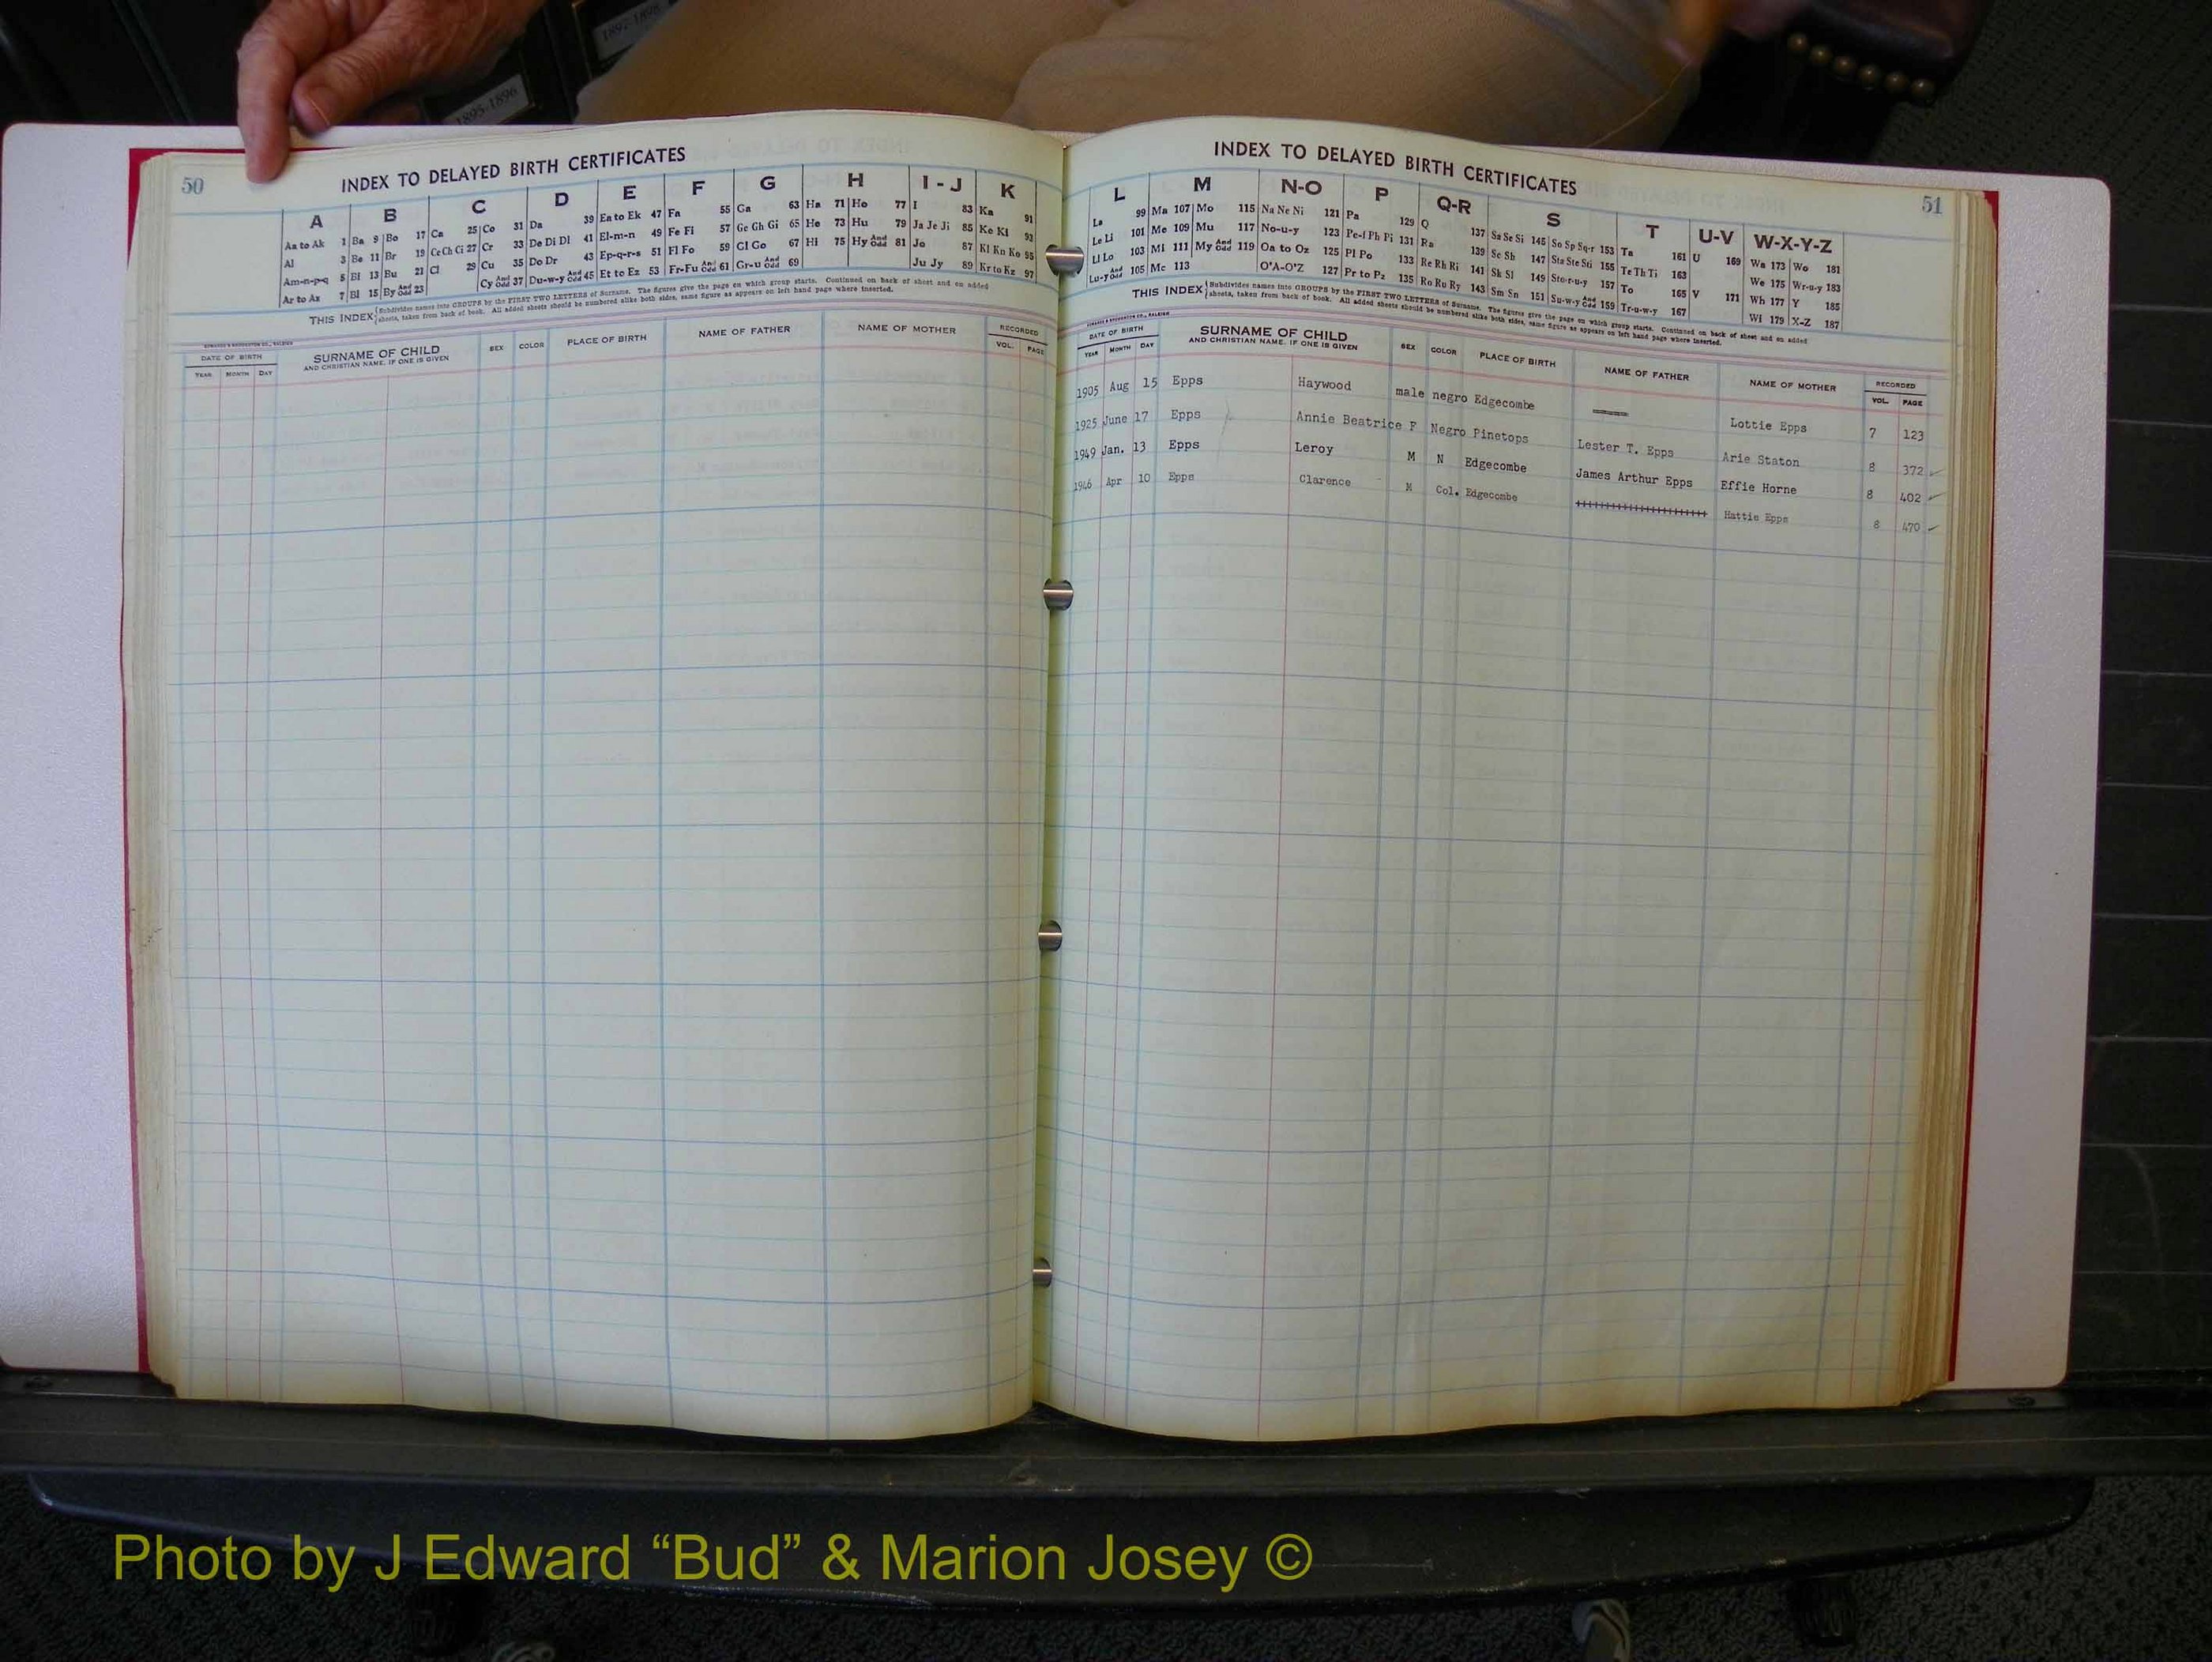 1897-1898
1895-1896
50
INDEX TO DELAYED BIRTH CERTIFICATES
A B C D E F G H I - J K
Aa to Ak 1 Ba 9 Bo 17 Ca 25 Co 31 Da 39 Ea to Ek 47 Fa 55 Ga 63 Ha 71 Ho 77 I 83 Ka 91
Al 3 Be 11 Br 19 Ce Ch Ci 27 Cr 33 De Di Dl 41 El-m-n 49 Fe Fi 57 Ge Gh Gi 65 He 73 Hu 79 Ja Je Ji 85 Ke Ki 93
Am-n-p-q 5 Bi 13 Bu 21 Cl 29 Cu 35 Do Dr 43 Ep-q-r-s 51 Fl Fo 59 Gl Go 67 Hi 75 Hy And Odd 81 Jo 87 Kl Kn Ko 95
Ar to Ax 7 Bl 15 By And Odd 23 Cy And Odd 37 Du-w-y And Odd 45 Et to Ez 53 Fr-Fu And Odd 61 Gr-u And Odd 69 Ju Jy 89 Kr to Kz 97
THIS INDEX { Subdivides names into GROUPS by the FIRST TWO LETTERS of Surname. The figures give the page on which group starts. Continued on back of sheet and on added
sheets, taken from back of book. All added sheets should be numbered alike both sides, same figure as appears on left hand page where inserted.
EDWARDS & BROUGHTON CO., RALEIGH
DATE OF BIRTH SURNAME OF CHILD SEX COLOR PLACE OF BIRTH NAME OF FATHER NAME OF MOTHER RECORDED
YEAR MONTH DAY AND CHRISTIAN NAME, IF ONE IS GIVEN VOL. PAGE
INDEX TO DELAYED BIRTH CERTIFICATES
51
L M N-O P Q-R S T U-V W-X-Y-Z
La 99 Ma 107 Mo 115 Na Ne Ni 121 Pa 129 Q 137 Sa Se Si 145 So Sp Sq-r 153 Ta 161 U 169 Wa 173 Wo 181
Le Li 101 Me 109 Mu 117 No-u-y 123 Pe-f Ph Pi 131 Ra 139 Sc Sh 147 Sta Ste Sti 155 Te Th Ti 163 We 175 Wr-u-y 183
Ll Lo 103 Mi 111 My And Odd 119 Oa to Oz 125 Pl Po 133 Re Rh Ri 141 Sk Sl 149 Sto-r-u-y 157 To 165 V 171 Wh 177 Y 185
Lu-y And Odd 105 Mc 113 O'A-O'Z 127 Pr to Pz 135 Ro Ru Ry 143 Sm Sn 151 Su-w-y And Odd 159 Tr-u-w-y 167 Wi 179 X-Z 187
THIS INDEX { Subdivides names into GROUPS by the FIRST TWO LETTERS of Surname. The figures give the page on which group starts. Continued on back of sheet and on added
sheets, taken from back of book. All added sheets should be numbered alike both sides, same figure as appears on left hand page where inserted.
EDWARDS & BROUGHTON CO., RALEIGH
DATE OF BIRTH SURNAME OF CHILD SEX COLOR PLACE OF BIRTH NAME OF FATHER NAME OF MOTHER RECORDED
YEAR MONTH DAY AND CHRISTIAN NAME, IF ONE IS GIVEN VOL. PAGE
1905 Aug 15 Epps Haywood male negro Edgecombe ---- Lottie Epps 7 123
1925 June 17 Epps Annie Beatrice F Negro Pinetops Lester T. Epps Arie Staton 8 372 ✓
1949 Jan. 13 Epps Leroy M N Edgecombe James Arthur Epps Effie Horne 8 402 ✓
1946 Apr 10 Epps Clarence M Col. Edgecombe ++++++++++++++++++++ Hattie Epps 8 470 ✓
Photo by J Edward “Bud” & Marion Josey ©